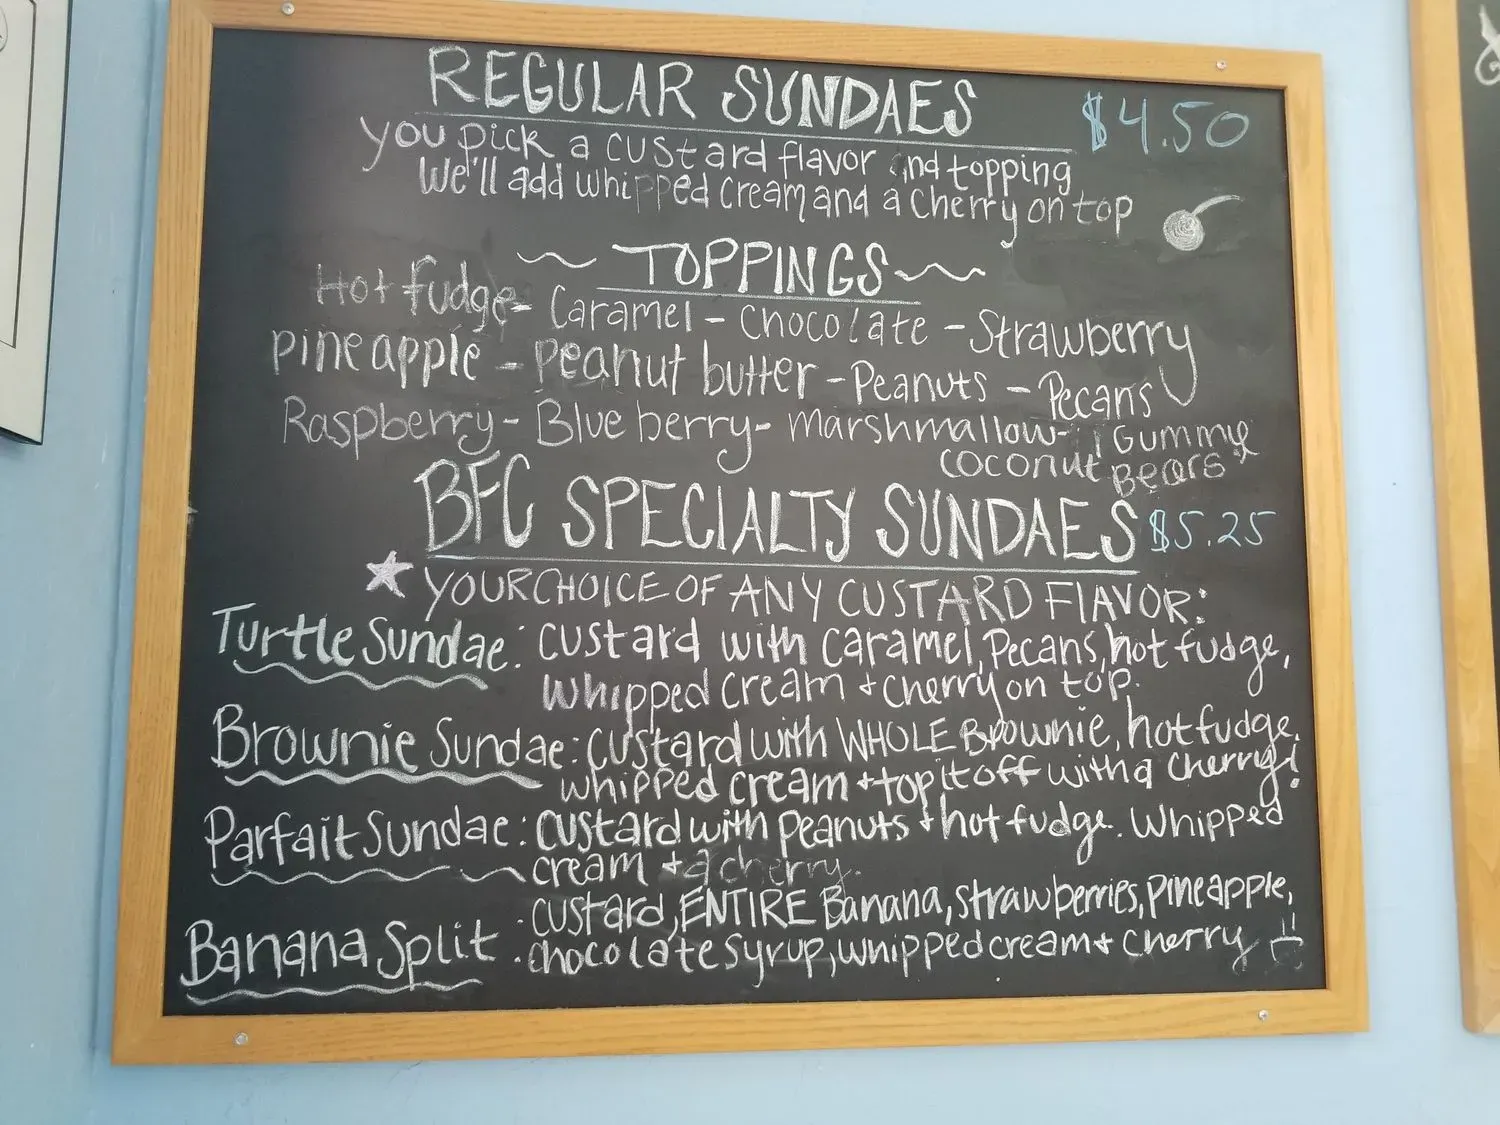 REGULAR SUNDAES $4.50
you pick a custard flavor and topping
We'll add whipped cream and a cherry on top
~ TOPPINGS ~
Hot fudge - Caramel - Chocolate - Strawberry
Pineapple - Peanut butter - Peanuts - Pecans
Raspberry - Blueberry - Marshmallow - Gummy
coconut Bears
BFC SPECIALTY SUNDAES $5.25
YOUR CHOICE OF ANY CUSTARD FLAVOR:
Turtle Sundae: custard with caramel, Pecans, hot fudge,
whipped cream + cherry on top.
Brownie Sundae: custard with WHOLE Brownie, hot fudge,
whipped cream + top it off with a cherry!
Parfait Sundae: custard with peanuts + hot fudge. Whipped
cream + a cherry.
Banana Split: custard, ENTIRE Banana, strawberries, pineapple,
chocolate syrup, whipped cream + cherry